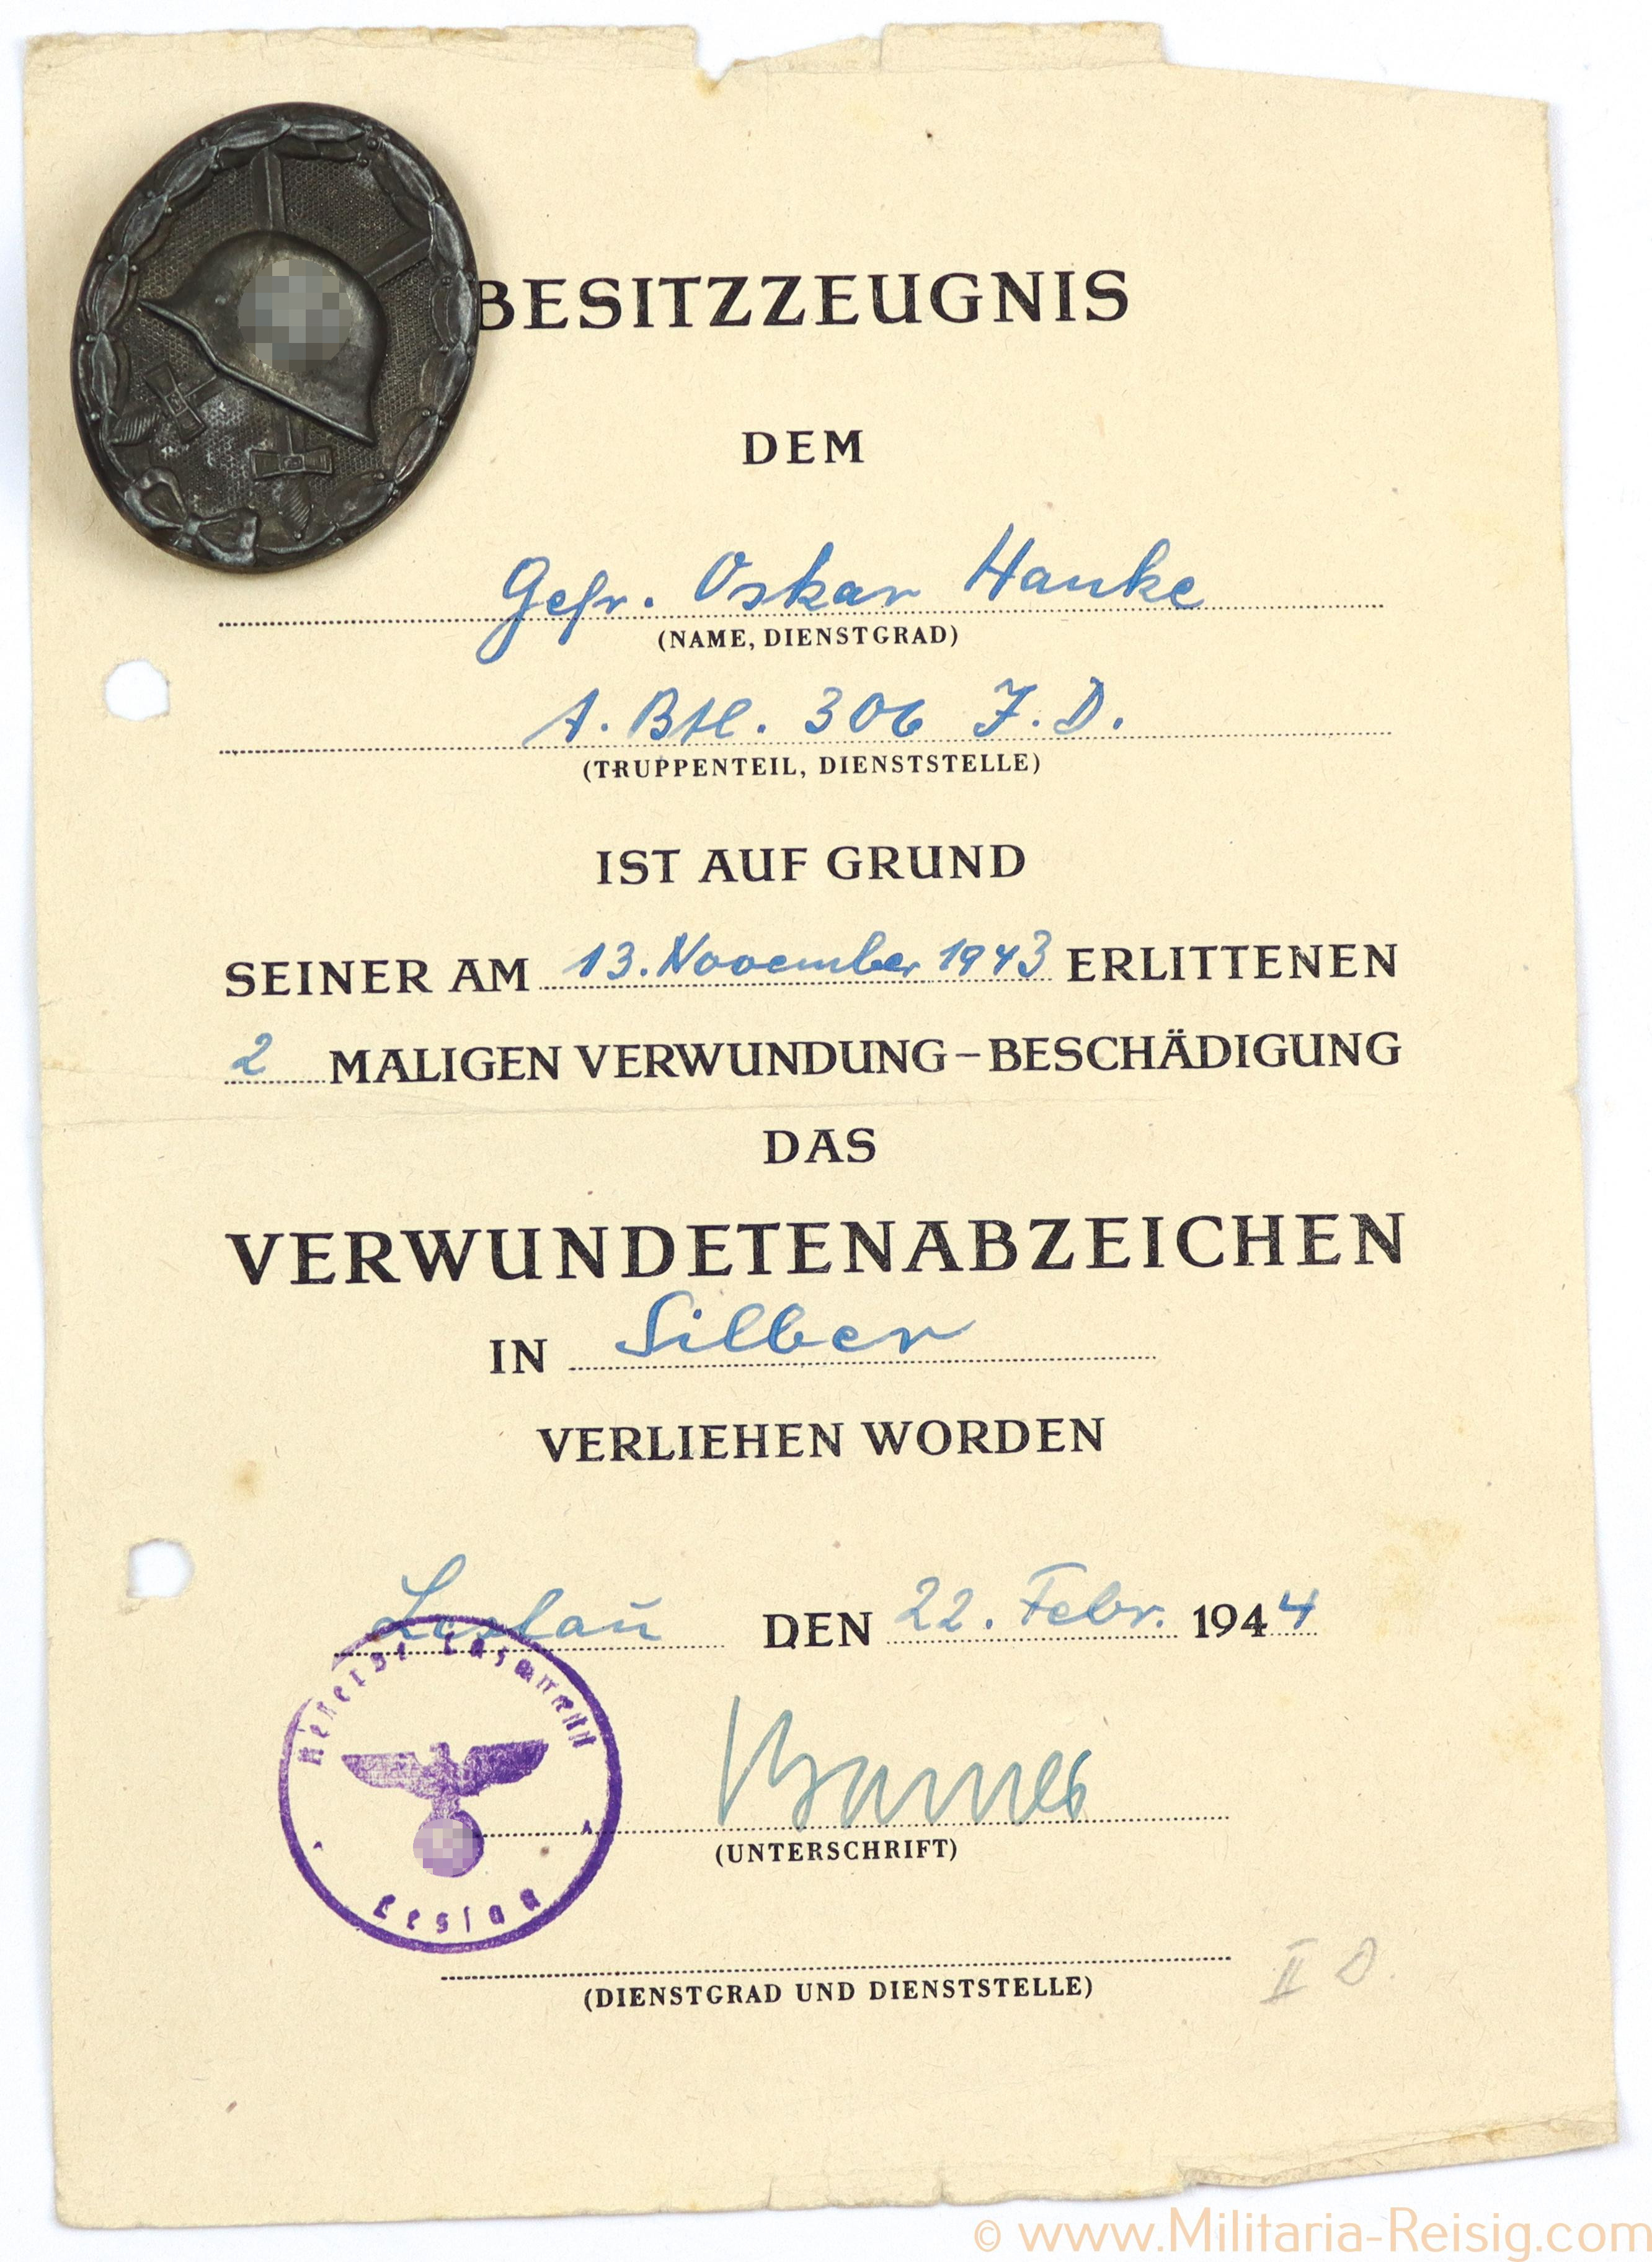 BESITZZEUGNIS
DEM
Gefr. Oskar Hanke
(NAME, DIENSTGRAD)
A. Btl. 306 J. D.
(TRUPPENTEIL, DIENSTSTELLE)
IST AUF GRUND
SEINER AM 13. November 1943 ERLITTENEN
2 MALIGEN VERWUNDUNG – BESCHÄDIGUNG
DAS
VERWUNDETENABZEICHEN
IN Silber
VERLIEHEN WORDEN
Leslau DEN 22. Febr. 1944
Reserve Lazarett
Leslau
(UNTERSCHRIFT)
(DIENSTGRAD UND DIENSTSTELLE)
II D.
© www.Militaria-Reisig.com